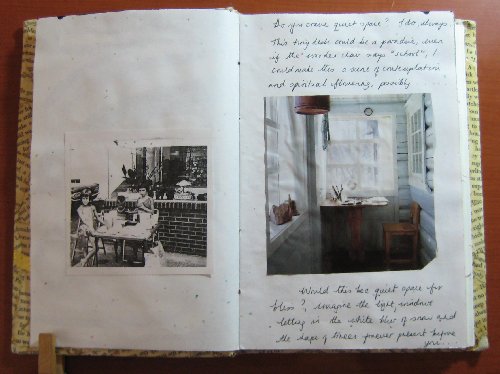 Do you crave quiet space? I do, always.
This tiny desk could be a paradise, even
if the wooden chair says "school", I
could make this a scene of contemplation
and spiritual flowering, possibly.
Would this be quiet space for
bliss?, imagine the light, windows
letting in the white blue of snow and
the shape of trees forever present before
you...